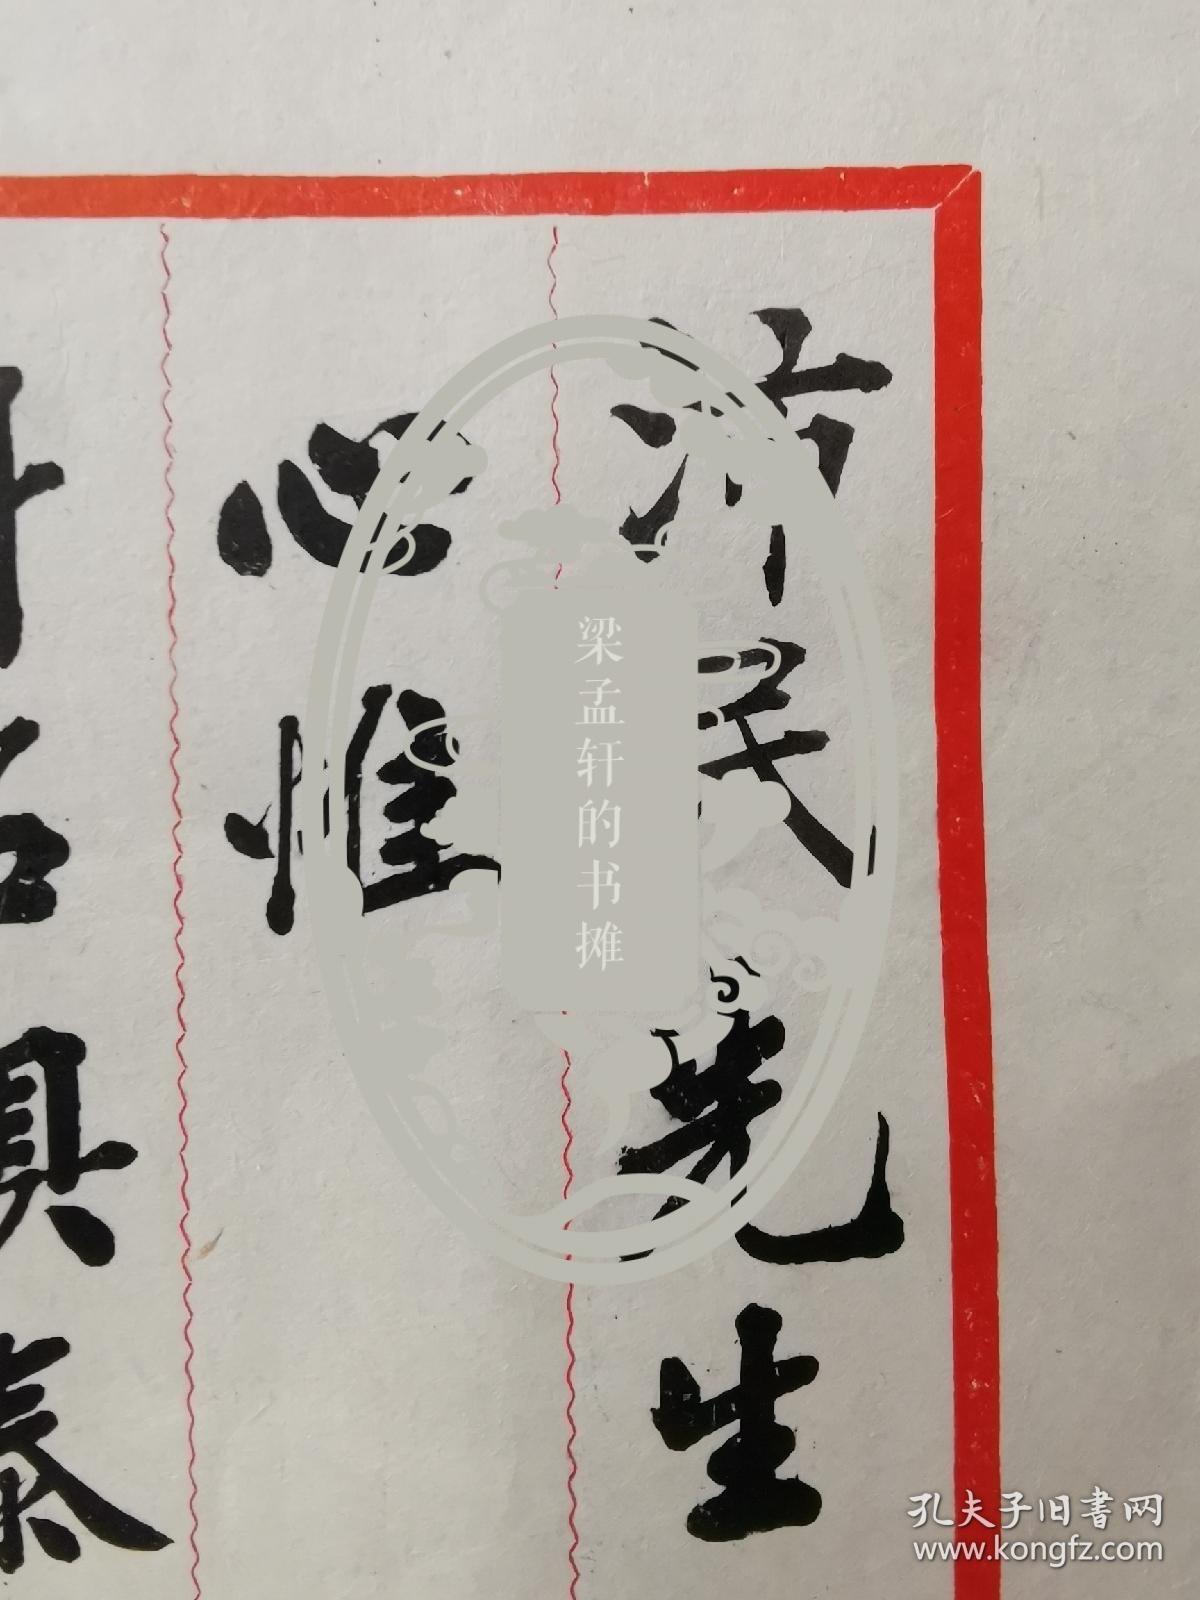 沛民先生
心惟
俱泰
梁孟轩的书摊
孔夫子旧书网
www.kongfz.com